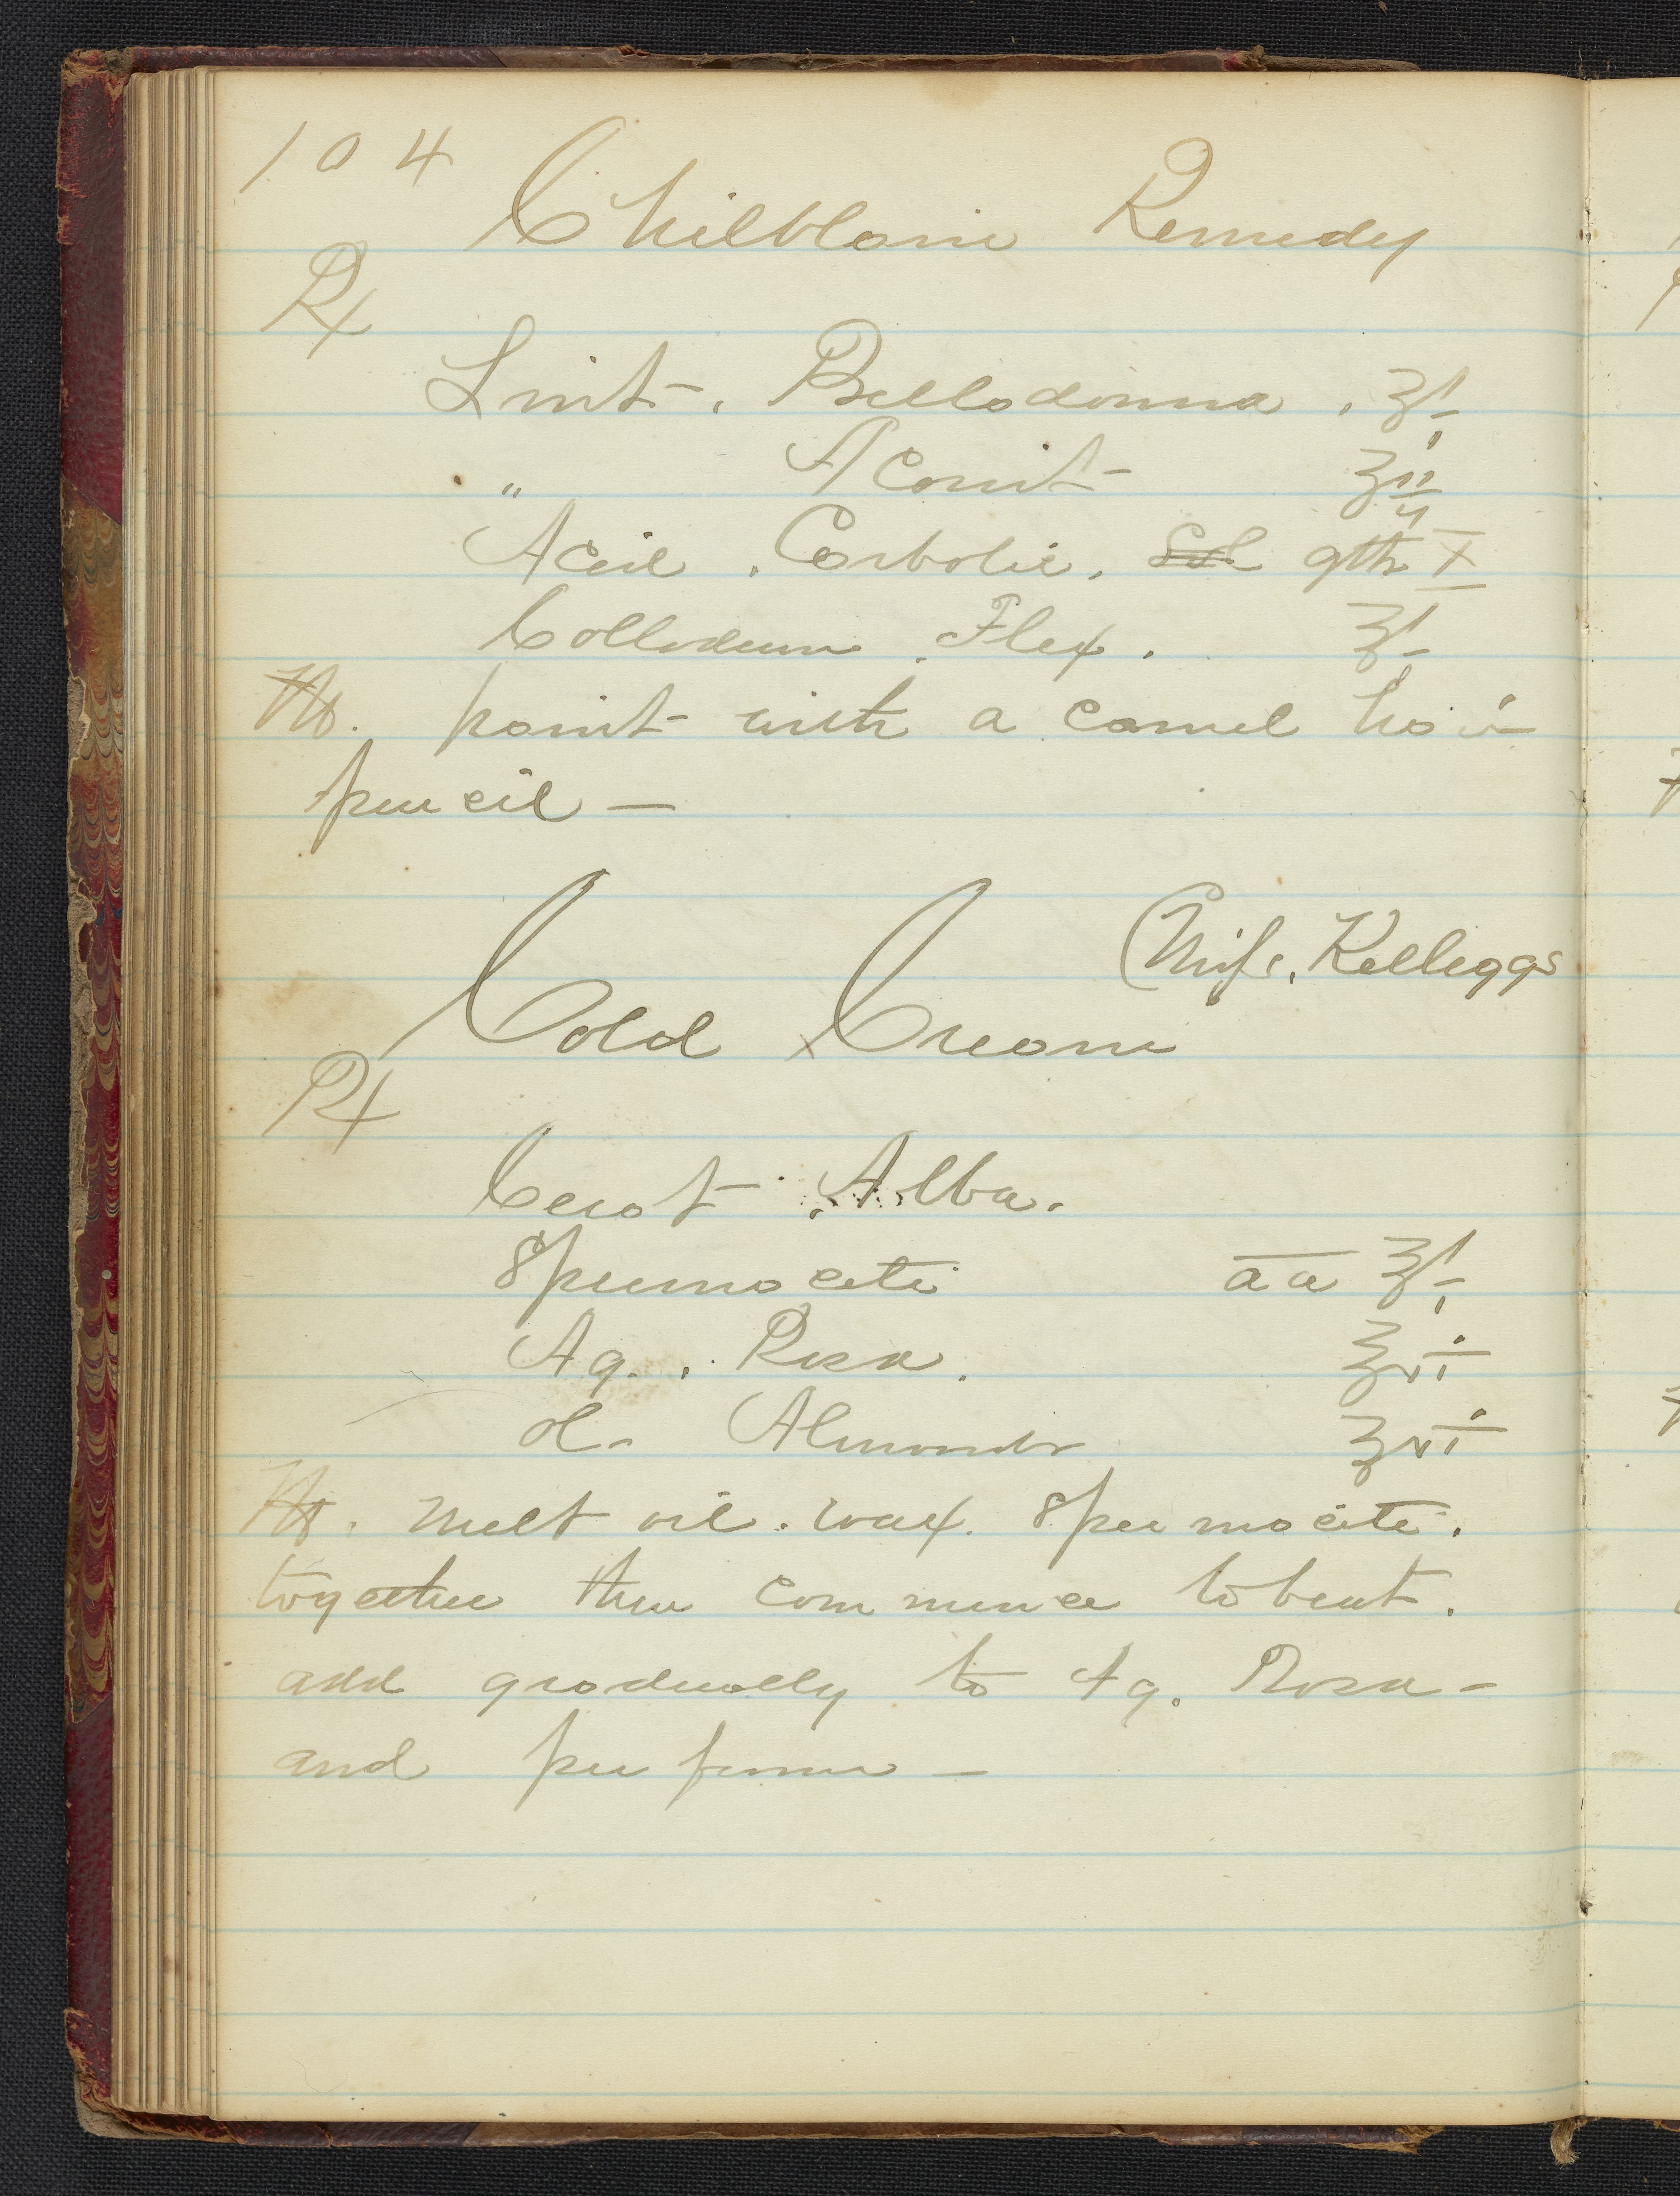 104
Chilblain Remedy
Rx
Linit. Belladonna. ʒi
" Aconit ʒii
Acid. Carbolic. gtts X
Collodium. Flex. ʒi
M. paint with a camel hair
pencil —
(Miss. Kelleggs
Cold Cream
Rx
Cerat. Alba.
Spermaceti aa ʒi
Aq. Rosa.
Ol. Almonds
M. Melt oil. wax. Spermaceti.
together then commence to beat.
add gradually to Aq. Rosa -
and perfume —